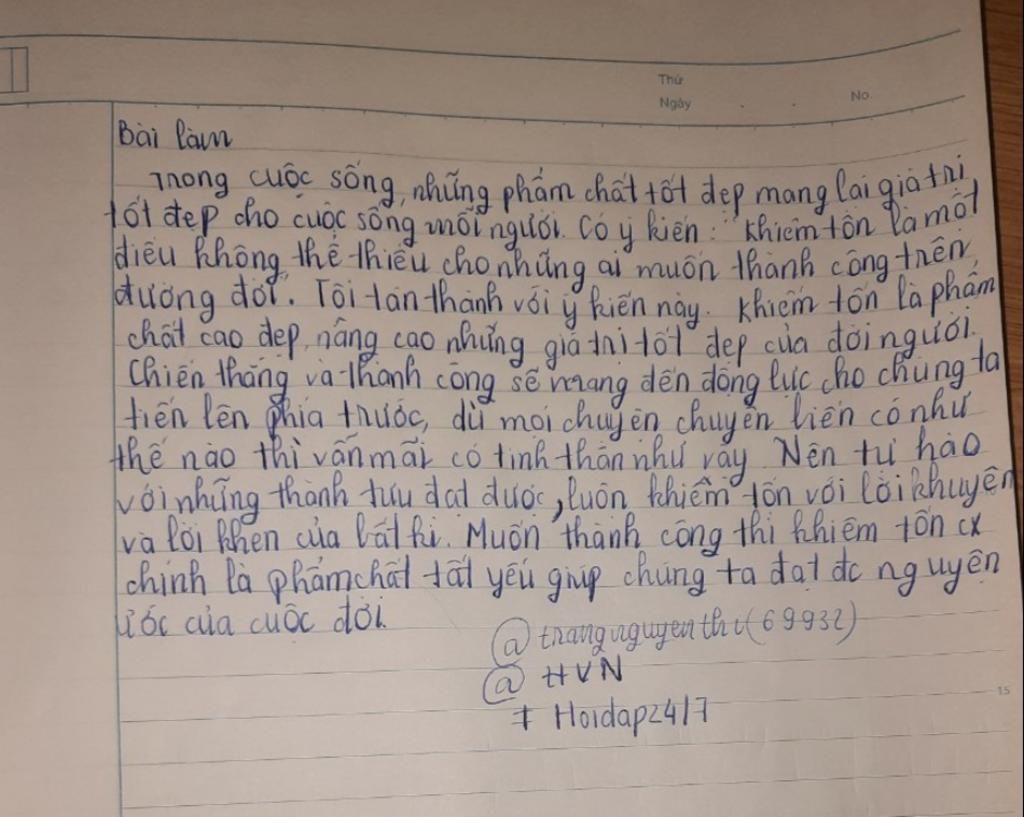 Thứ
Ngày . . No.
Bài làm
Trong cuộc sống, những phẩm chất tốt đẹp mang lại giá trị
tốt đẹp cho cuộc sống mỗi người. Có ý kiến: "Khiêm tốn là một
điều không thể thiếu cho những ai muốn thành công trên
đường đời. Tôi tán thành với ý kiến này. Khiêm tốn là phẩm
chất cao đẹp, nâng cao những giá trị tốt đẹp của đời người.
Chiến thắng và thành công sẽ mang đến động lực cho chúng ta
tiến lên phía trước, dù mọi chuyện chuyển biến có như
thế nào thì vẫn mãi có tinh thần như vậy. Nên tự hào
với những thành tựu đạt được, luôn khiêm tốn với lời khuyên
và lời khen của bất kì. Muốn thành công thì khiêm tốn cx
chính là phẩm chất tất yếu giúp chúng ta đạt đc nguyện
ước của cuộc đời.
@trangnguyenthi(69932)
@ HVN
# Hoidap24/7
15